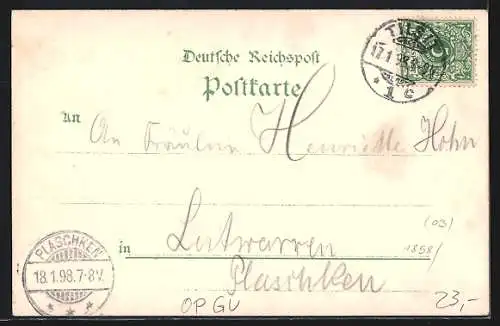 TILSIT
17.1.98.
* 1 c
Deutsche Reichspost
Postkarte
An
An Fräulein Henriette Hohn
(03)
in Lutwarren
1858/
Plaschken
PLASCHKEN
18.1.98.7-8V.
* * *
OP GU
23,-